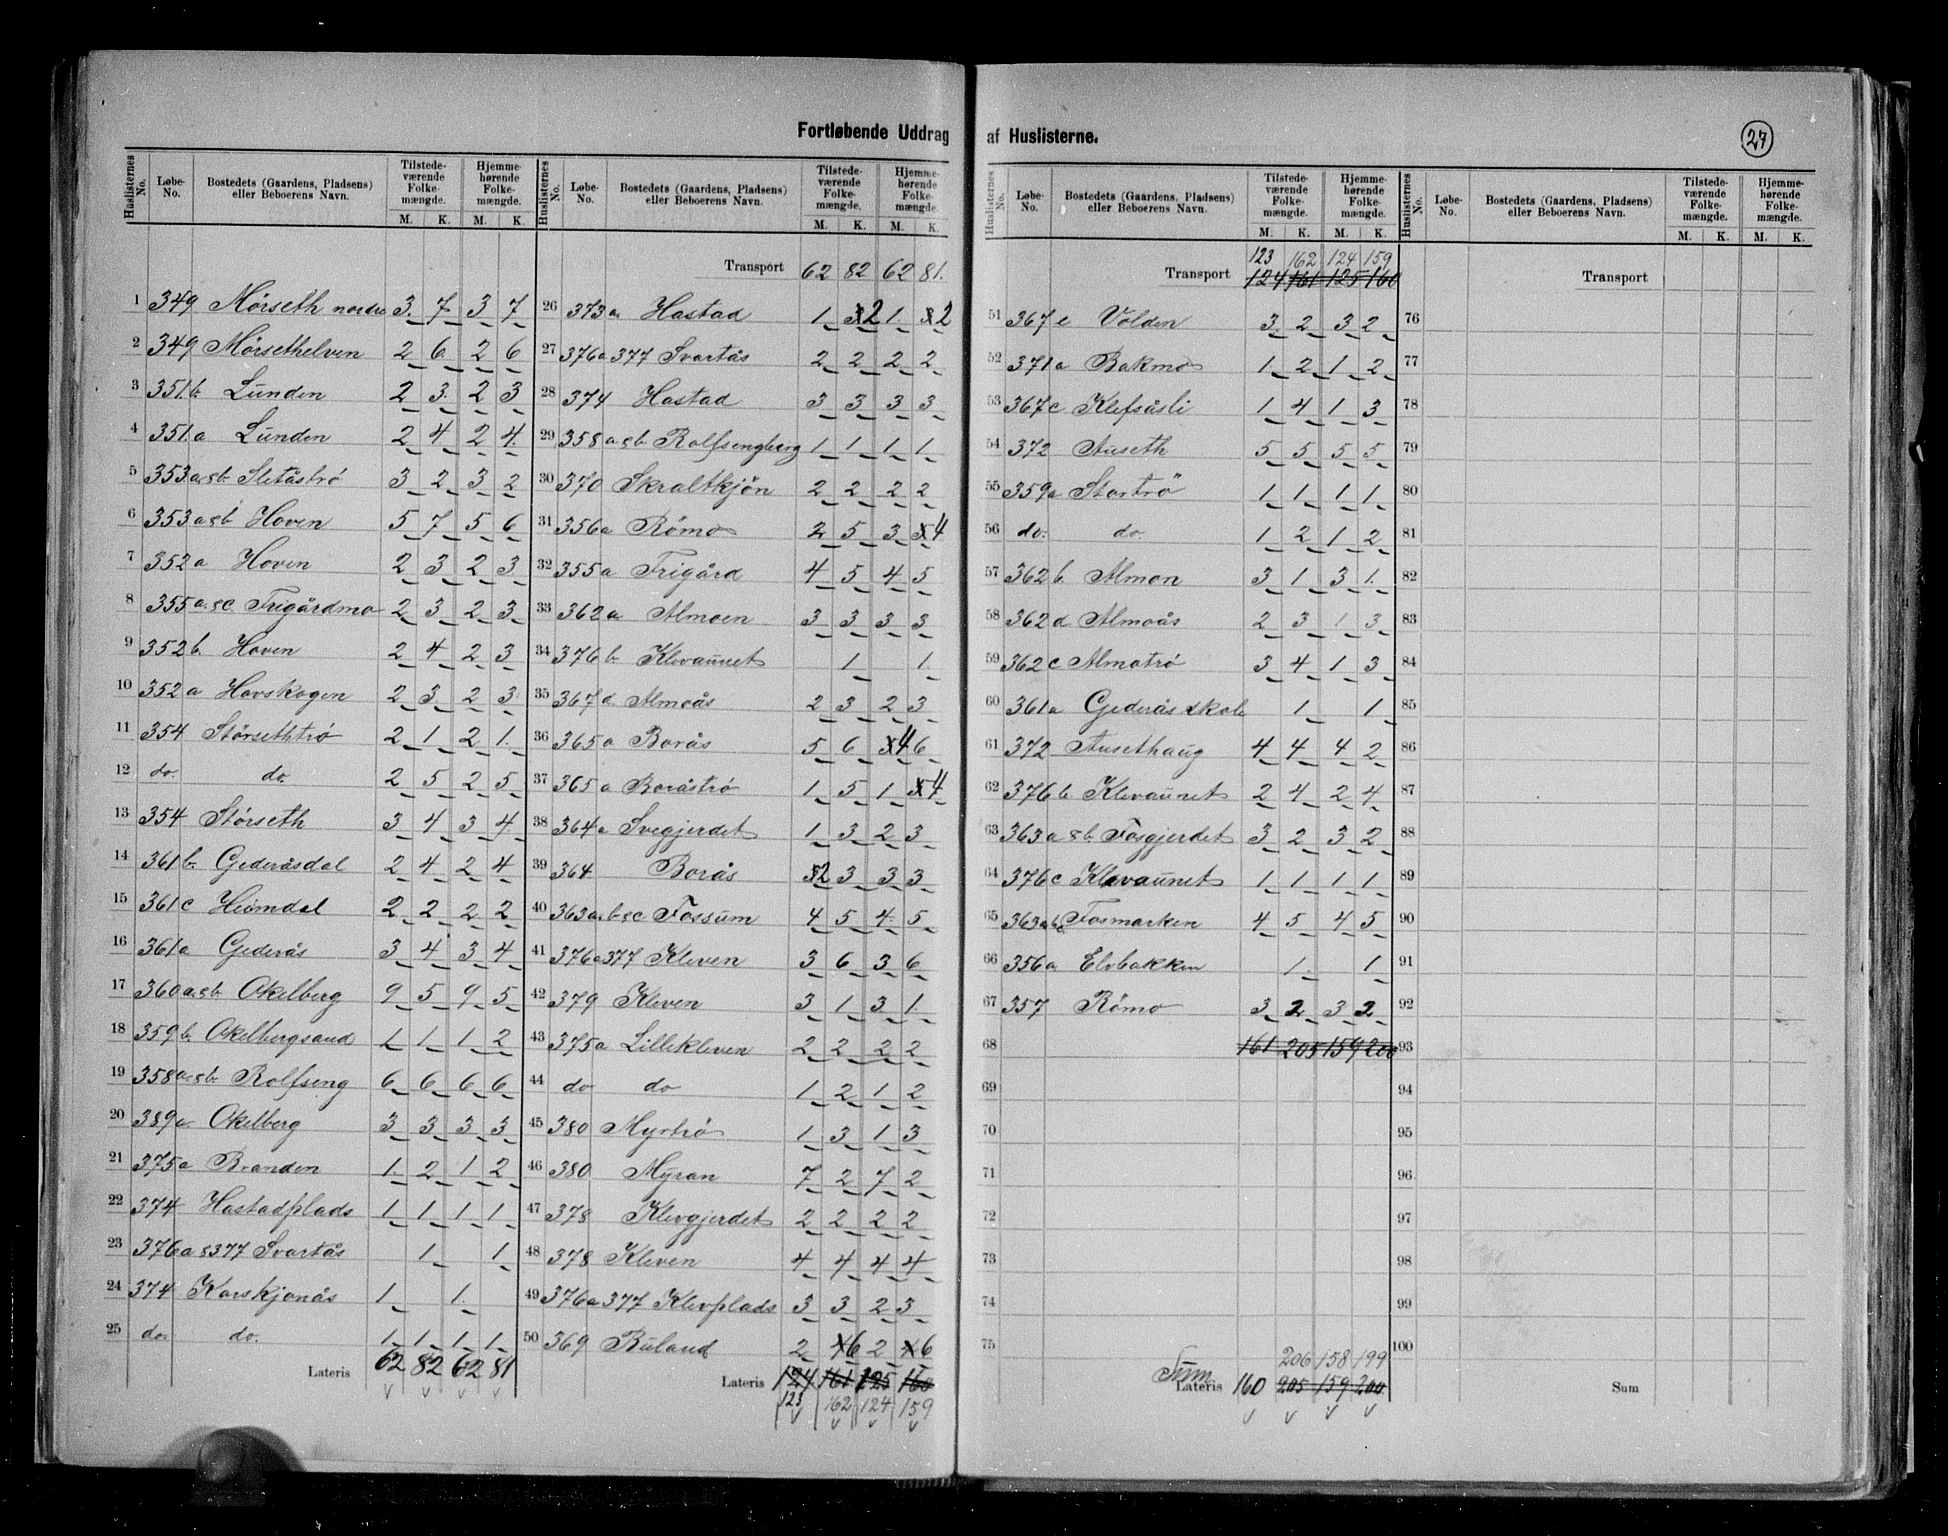 Fortløbende Uddrag af Huslisterne.
27
Huslisternes No. Løbe-No. Bostedets (Gaardens, Pladsens) eller Beboerens Navn. Tilstedeværende Folkemængde. M. K. Hjemmehørende Folkemængde. M. K.
1 349 Mörseth nordre 3 7 3 7
2 349 Mörsethelven 2 6 2 6
3 351 b Lunden 2 3 2 3
4 351 a Lunden 2 4 2 4
5 353 a & b Sletåströ 3 2 3 2
6 353 a & b Hoven 5 7 5 6
7 352 a Hoven 2 3 2 3
8 355 a & c Trigårdmo 2 3 2 3
9 352 b Hoven 2 4 2 3
10 352 a Hovskogen 2 3 2 3
11 354 Störsethtrö 2 1 2 1
12 do. do. 2 5 2 5
13 354 Störseth 3 4 3 4
14 361 b Gederåsdal 2 4 2 4
15 361 c Heimdal 2 2 2 2
16 361 a Gederås 3 4 3 4
17 360 a & b Okelberg 9 5 9 5
18 359 b Okelbergsaud 1 1 1 2
19 358 a & b Rolfseng 6 6 6 6
20 389 a Okelberg 3 3 3 3
21 375 a Branden 1 2 1 2
22 374 Hastadplads 1 1 1 1
23 376 a & 377 Svartås 1 1
24 374 Korskjonås 1 1
25 do. do. 1 1 1 1
Lateris 62 82 62 81
Huslisternes No. Løbe-No. Bostedets (Gaardens, Pladsens) eller Beboerens Navn. Tilstedeværende Folkemængde. M. K. Hjemmehørende Folkemængde. M. K.
Transport 62 82 62 81.
26 373 a Hastad 1 2 1 2
27 376 a 377 Svartås 2 2 2 2
28 374 Hastad 3 3 3 3
29 358 a & b Rolfsengberg 1 1 1 1
30 370 Skraltkjön 2 2 2 2
31 356 a Römo 2 5 3 4
32 355 a Trigård 4 5 4 5
33 362 a Almoen 3 3 3 3
34 376 b Klevaunet 1 1
35 367 d Almoås 2 3 2 3
36 365 a Borås 5 6 4 6
37 365 a Boråströ 1 5 1 4
38 364 a Svegjerdet 1 3 2 3
39 364 Borås 2 3 3 3
40 363 a b & c Fossum 4 5 4 5
41 376 a 377 Kleven 3 6 3 6
42 379 Kleven 3 1 3 1
43 375 a Lillekleven 2 2 2 2
44 do do 1 2 1 2
45 380 Myrtrö 1 3 1 3
46 380 Myran 7 2 7 2
47 378 Klevgjerdet 2 2 2 2
48 378 Kleven 4 4 4 4
49 376 a 377 Klevplads 3 3 2 3
50 369 Buland 2 6 2 6
Lateris 124 161 125 160
123 162 124 159
Huslisternes No. Løbe-No. Bostedets (Gaardens, Pladsens) eller Beboerens Navn. Tilstedeværende Folkemængde. M. K. Hjemmehørende Folkemængde. M. K.
123 162 124 159
Transport 124 161 125 160
51 367 e Volden 3 2 3 2
52 371 a Bakmo 1 2 1 2
53 367 c Klefsåsli 1 4 1 3
54 372 Auseth 5 5 5 5
55 359 a Stortrö 1 1 1 1
56 do. do. 1 2 1 2
57 362 b. Almon 3 1 3 1
58 362 d. Almoås 2 3 1 3
59 362 c Almotrö 3 4 1 3
60 361 a Gederås skole 1 1
61 372 Ausethaug 4 4 4 2
62 376 b. Klevaunet 2 4 2 4
63 363 a & b. Fosgjerdet 3 2 3 2
64 376 c Klevaunet 1 1 1 1
65 363 a b Fosmarken 4 5 4 5
66 356 a Elvbakken 1 1
67 357 Römo 3 2 3 2
68 161 205 159 200
69
70
71
72
73
74
75
206 158 199
Sum
Lateris 160 205 159 200
Huslisternes No. Løbe-No. Bostedets (Gaardens, Pladsens) eller Beboerens Navn. Tilstedeværende Folkemængde. M. K. Hjemmehørende Folkemængde. M. K.
Transport
76
77
78
79
80
81
82
83
84
85
86
87
88
89
90
91
92
93
94
95
96
97
98
99
100
Sum